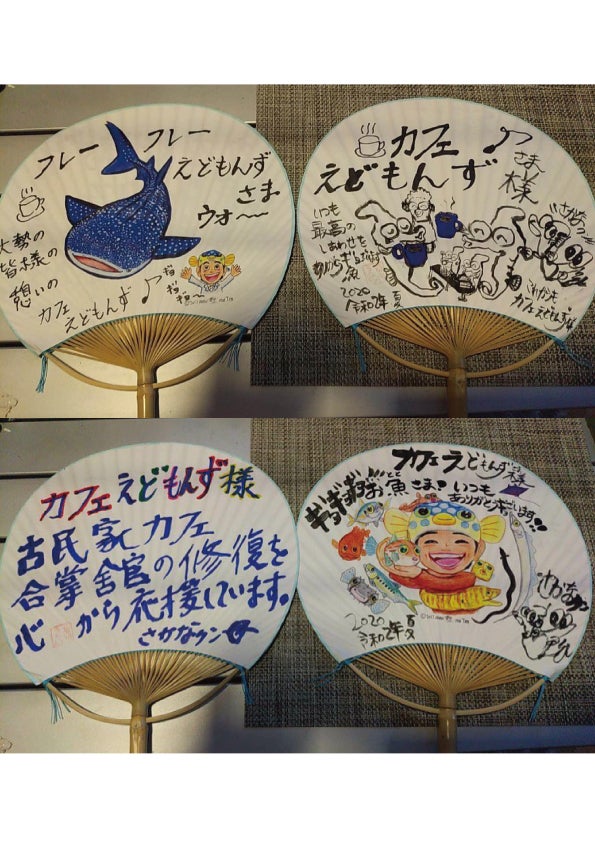 フレー フレー
えどもんず
さま
ウォ〜〜
大勢の
皆様の
憩いの
カフェ
えどもんず♪
ギョ
ギョ
ギョ〜
カフェ♪
えどもんず
さま
様
いつも
最高の
しあわせを
ありがとうギョざいます
2020
令和2年 夏
カフェえどもんず様
古民家カフェ
合掌舎官の修復を
心から応援しています。
さかなクン
カフェえどもんずさま
様
ギョギョギョッ
お魚さま
とと
いつも
ありがとうギョざいます!!
2020
令和2年 夏